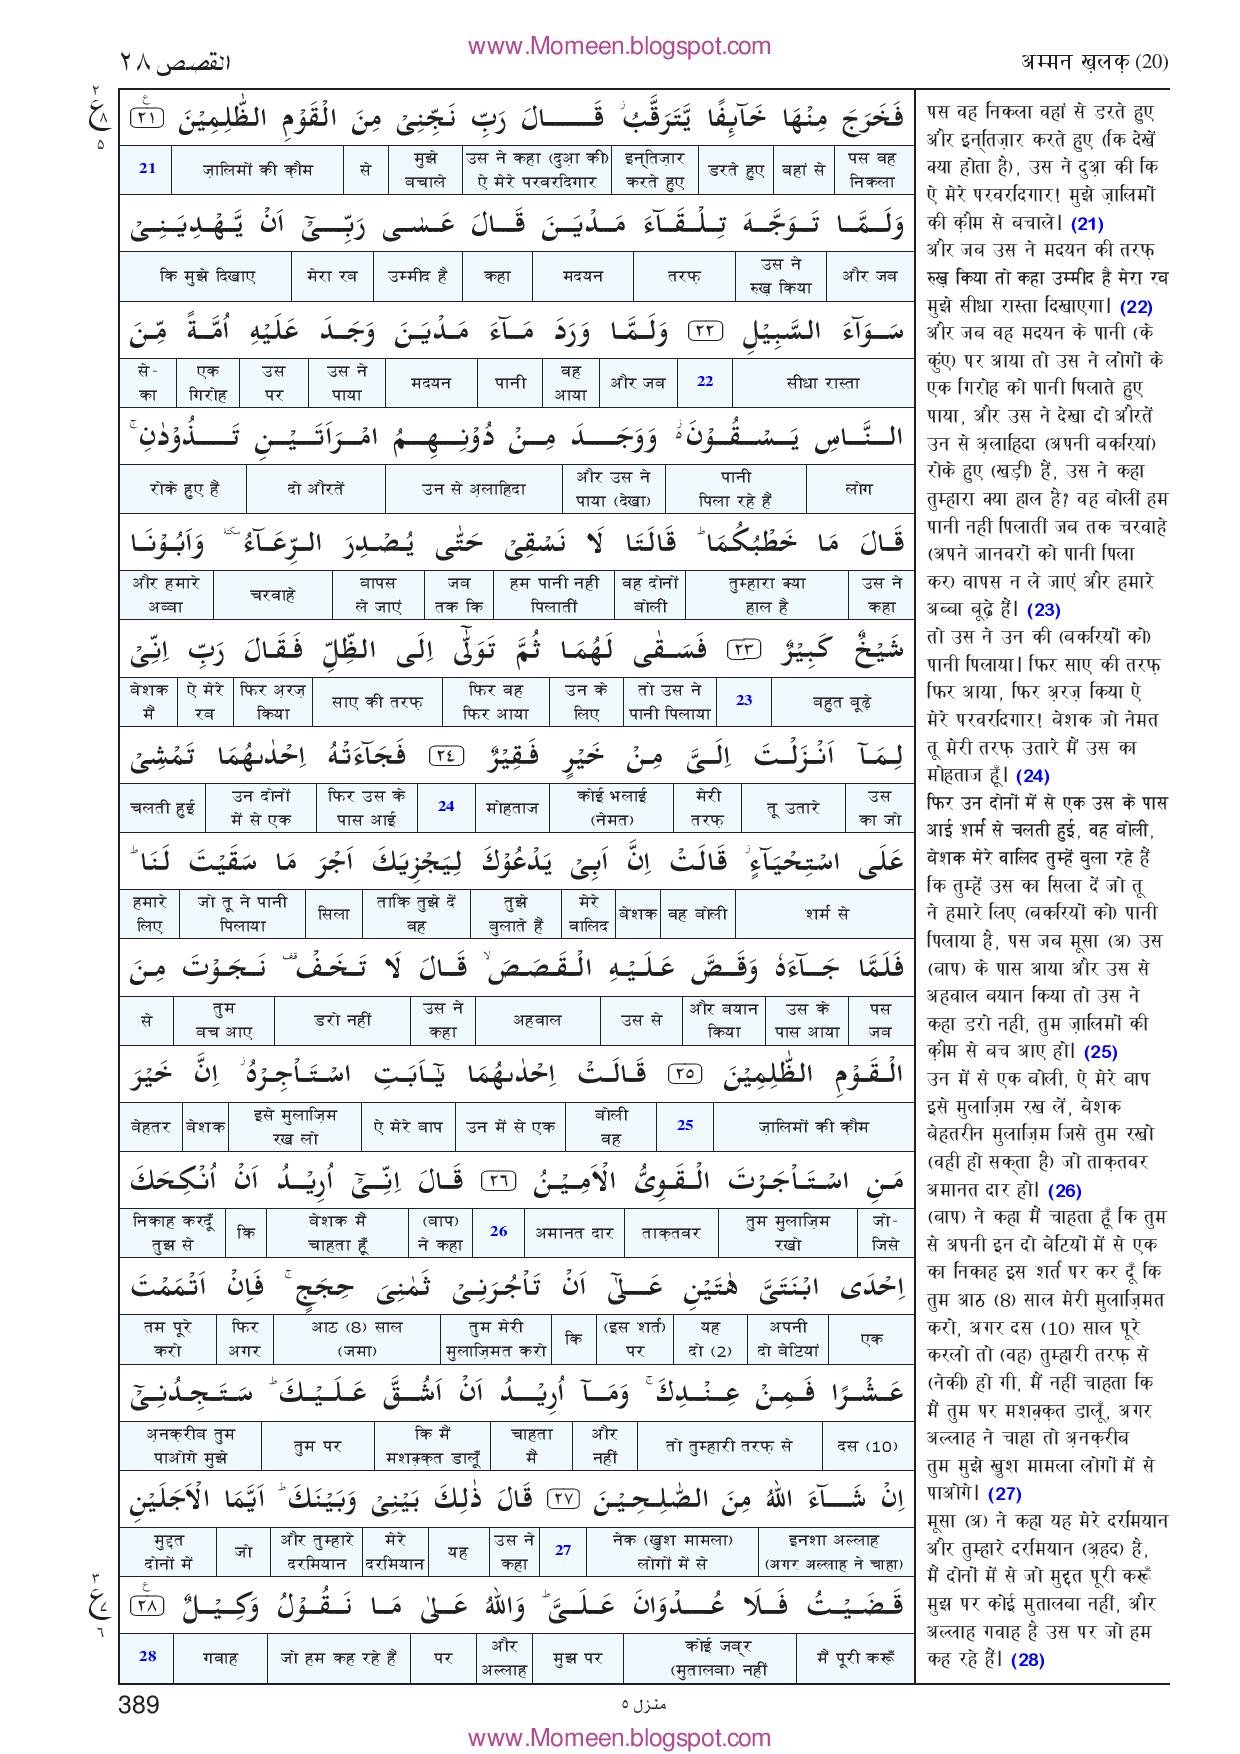 www.Momeen.blogspot.com
القصص ٢٨
अम्मन ख़लक़ (20)
٢
ع
٨
٥
فَخَرَجَ مِنْهَا خَآىِٕفًا يَّتَرَقَّبُ ۫ قَالَ رَبِّ نَجِّنِيْ مِنَ الْقَوْمِ الظّٰلِمِيْنَ ۟ ٢١
पस वह निकला | वहां से | डरते हुए | इन्तिज़ार करते हुए | उस ने कहा (दुआ की) ऐ मेरे परवरदिगार | मुझे बचाले | से | ज़ालिमों की क़ौम | 21
وَلَمَّا تَوَجَّهَ تِلْقَآءَ مَدْيَنَ قَالَ عَسٰى رَبِّيْۤ اَنْ يَّهْدِيَنِيْ
और जब | उस ने रुख़ किया | तरफ़ | मदयन | कहा | उम्मीद है | मेरा रब | कि मुझे दिखाए
سَوَآءَ السَّبِيْلِ ٢٢ وَلَمَّا وَرَدَ مَآءَ مَدْيَنَ وَجَدَ عَلَيْهِ اُمَّةً مِّنَ
सीधा रास्ता | 22 | और जब | वह आया | पानी | मदयन | उस ने पाया | उस पर | एक गिरोह | से-का
النَّاسِ يَسْقُوْنَ ۬ۗ وَوَجَدَ مِنْ دُوْنِهِمُ امْرَاَتَيْنِ تَذُوْدٰنِ ۚ
लोग | पानी पिला रहे हैं | और उस ने पाया (देखा) | उन से अ़लाहिदा | दो औरतें | रोके हुए हैं
قَالَ مَا خَطْبُكُمَا ؕ قَالَتَا لَا نَسْقِيْ حَتّٰى يُصْدِرَ الرِّعَآءُ ٚ وَاَبُوْنَا
उस ने कहा | तुम्हारा क्या हाल है | वह दोनों बोलीं | हम पानी नहीं पिलातीं | जब तक कि | वापस ले जाएं | चरवाहे | और हमारे अब्बा
شَيْخٌ كَبِيْرٌ ٢٣ فَسَقٰى لَهُمَا ثُمَّ تَوَلّٰٓى اِلَى الظِّلِّ فَقَالَ رَبِّ اِنِّيْ
बहुत बूढ़े | 23 | तो उस ने पानी पिलाया | उन के लिए | फिर वह फिर आया | साए की तरफ़ | फिर अ़रज़ किया | ऐ मेरे रब | बेशक मैं
لِمَاۤ اَنْزَلْتَ اِلَيَّ مِنْ خَيْرٍ فَقِيْرٌ ٢٤ فَجَآءَتْهُ اِحْدٰىهُمَا تَمْشِيْ
उस का जो | तू उतारे | मेरी तरफ़ | कोई भलाई (नेमत) | मोहताज | 24 | फिर उस के पास आई | उन दोनों में से एक | चलती हुई
عَلَى اسْتِحْيَآءٍ ؗ قَالَتْ اِنَّ اَبِيْ يَدْعُوْكَ لِيَجْزِيَكَ اَجْرَ مَا سَقَيْتَ لَنَا ؕ
शर्म से | वह बोली | बेशक | मेरे वालिद | तुझे बुलाते हैं | ताकि तुझे दें वह | सिला | जो तू ने पानी पिलाया | हमारे लिए
فَلَمَّا جَآءَهٗ وَقَصَّ عَلَيْهِ الْقَصَصَ ۙ قَالَ لَا تَخَفْ ۥ۫ نَجَوْتَ مِنَ
पस जब | उस के पास आया | और बयान किया | उस से | अहवाल | उस ने कहा | डरो नहीं | तुम बच आए | से
الْقَوْمِ الظّٰلِمِيْنَ ٢٥ قَالَتْ اِحْدٰىهُمَا يٰۤاَبَتِ اسْتَاْجِرْهُ ؗ اِنَّ خَيْرَ
ज़ालिमों की क़ौम | 25 | बोली वह | उन में से एक | ऐ मेरे बाप | इसे मुलाज़िम रख लो | बेशक | बेहतर
مَنِ اسْتَاْجَرْتَ الْقَوِيُّ الْاَمِيْنُ ٢٦ قَالَ اِنِّيْۤ اُرِيْدُ اَنْ اُنْكِحَكَ
जो-जिसे | तुम मुलाज़िम रखो | ताक़तवर | अमानत दार | 26 | (बाप) ने कहा | बेशक मैं चाहता हूँ | कि | निकाह करदूँ तुझ से
اِحْدَى ابْنَتَيَّ هٰتَيْنِ عَلٰۤى اَنْ تَاْجُرَنِيْ ثَمٰنِيَ حِجَجٍ ۚ فَاِنْ اَتْمَمْتَ
एक | अपनी दो बेटियां | यह दो (2) | (इस शर्त) पर | कि | तुम मेरी मुलाज़िमत करो | आठ (8) साल (जमा) | फिर अगर | तम पूरे करो
عَشْرًا فَمِنْ عِنْدِكَ ۚ وَمَاۤ اُرِيْدُ اَنْ اَشُقَّ عَلَيْكَ ؕ سَتَجِدُنِيْۤ
दस (10) | तो तुम्हारी तरफ़ से | और नहीं | चाहता मैं | कि मैं मशक़्क़त डालूँ | तुम पर | अ़नक़रीब तुम पाओगे मुझे
اِنْ شَآءَ اللّٰهُ مِنَ الصّٰلِحِيْنَ ٢٧ قَالَ ذٰلِكَ بَيْنِيْ وَبَيْنَكَ ؕ اَيَّمَا الْاَجَلَيْنِ
इनशा अल्लाह (अगर अल्लाह ने चाहा) | नेक (खुश मामला) लोगों में से | 27 | उस ने कहा | यह | मेरे दरमियान | और तुम्हारे दरमियान | जो | मुद्दत दोनों में
قَضَيْتُ فَلَا عُدْوَانَ عَلَيَّ ؕ وَاللّٰهُ عَلٰى مَا نَقُوْلُ وَكِيْلٌ ٢٨
मैं पूरी करूँ | कोई जब्र (मुतालबा) नहीं | मुझ पर | और अल्लाह | पर | जो हम कह रहे हैं | गवाह | 28
٣
ع
٧
٦
पस वह निकला वहां से डरते हुए
और इन्तिज़ार करते हुए (कि देखें
क्या होता है), उस ने दुआ़ की कि
ऐ मेरे परवरदिगार! मुझे ज़ालिमों
की क़ौम से बचाले। (21)
और जब उस ने मदयन की तरफ़
रुख़ किया तो कहा उम्मीद है मेरा रब
मुझे सीधा रास्ता दिखाएगा। (22)
और जब वह मदयन के पानी (के
कुंए) पर आया तो उस ने लोगों के
एक गिरोह को पानी पिलाते हुए
पाया, और उस ने देखा दो औरतें
उन से अ़लाहिदा (अपनी बकरियां)
रोके हुए (खड़ी) हैं, उस ने कहा
तुम्हारा क्या हाल है? वह बोलीं हम
पानी नहीं पिलातीं जब तक चरवाहे
(अपने जानवरों को पानी पिला
कर) वापस न ले जाएं और हमारे
अब्बा बूढ़े हैं। (23)
तो उस ने उन की (बकरियों को)
पानी पिलाया। फिर साए की तरफ़
फिर आया, फिर अ़रज़ किया ऐ
मेरे परवरदिगार! बेशक जो नेमत
तू मेरी तरफ़ उतारे मैं उस का
मोहताज हूँ। (24)
फिर उन दोनों में से एक उस के पास
आई शर्म से चलती हुई, वह बोली,
बेशक मेरे वालिद तुम्हें बुला रहे हैं
कि तुम्हें उस का सिला दें जो तू
ने हमारे लिए (बकरियों को) पानी
पिलाया है, पस जब मूसा (अ) उस
(बाप) के पास आया और उस से
अहवाल बयान किया तो उस ने
कहा डरो नहीं, तुम ज़ालिमों की
क़ौम से बच आए हो। (25)
उन में से एक बोली, ऐ मेरे बाप
इसे मुलाज़िम रख लें, बेशक
बेहतरीन मुलाज़िम जिसे तुम रखो
(वही हो सकता है) जो ताक़तवर
अमानत दार हो। (26)
(बाप) ने कहा मैं चाहता हूँ कि तुम
से अपनी इन दो बेटियों में से एक
का निकाह इस शर्त पर कर दूँ कि
तुम आठ (8) साल मेरी मुलाज़िमत
करो, अगर दस (10) साल पूरे
करलो तो (वह) तुम्हारी तरफ़ से
(नेकी) हो गी, मैं नहीं चाहता कि
मैं तुम पर मशक़्क़त डालूँ, अगर
अल्लाह ने चाहा तो अ़नक़रीब
तुम मुझे खुश मामला लोगों में से
पाओगे। (27)
मूसा (अ) ने कहा यह मेरे दरमियान
और तुम्हारे दरमियान (अ़हद) है,
मैं दोनों में से जो मुद्दत पूरी करूँ
मुझ पर कोई मुतालबा नहीं, और
अल्लाह गवाह है उस पर जो हम
कह रहे हैं। (28)
389
منزل ٥
www.Momeen.blogspot.com